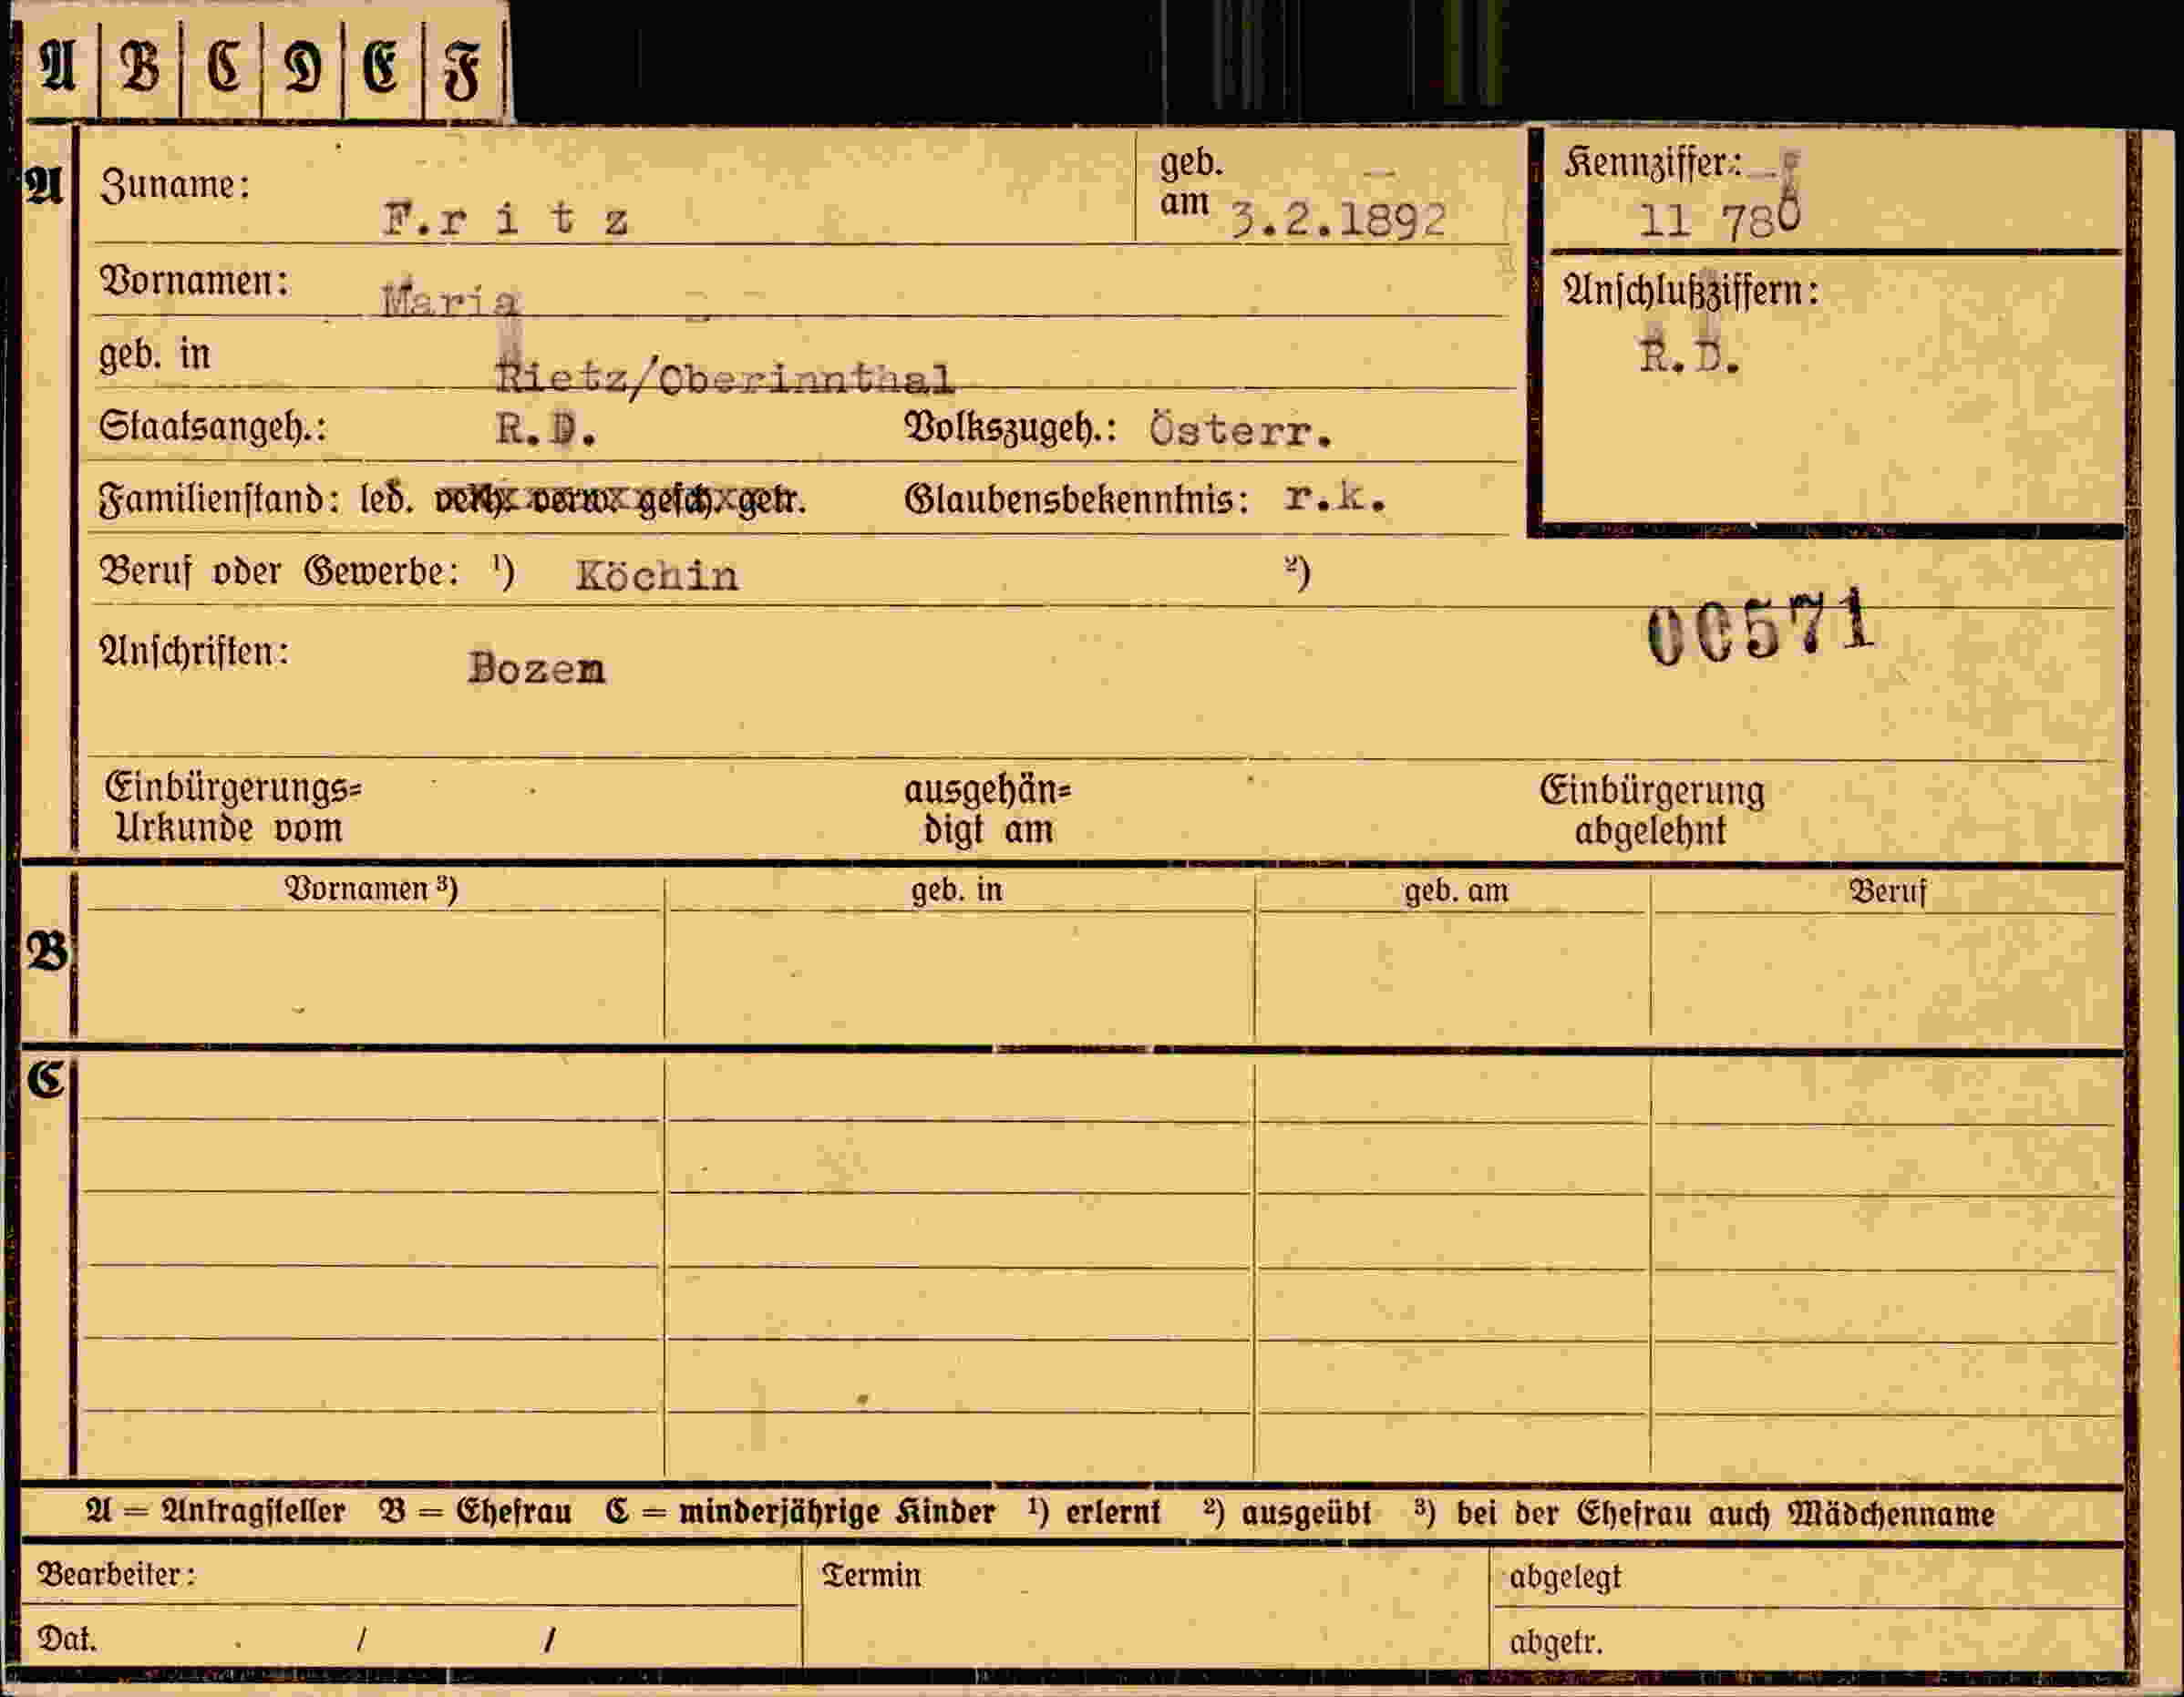 A B C D E F
A Zuname: F.r i t z geb. am 3.2.1892 Kennziffer: 11 780
Vornamen: Maria Anschlußziffern: R.D.
geb. in Rietz/Oberinnthal
Staatsangeh.: R.D. Volkszugeh.: Österr.
Familienstand: led. verh. verw. gesch. getr. Glaubensbekenntnis: r.k.
Beruf oder Gewerbe: ¹) Köchin ²)
00571
Anschriften: Bozen
Einbürgerungs= ausgehän= Einbürgerung
Urkunde vom digt am abgelehnt
Vornamen ³) geb. in geb. am Beruf
B
C
A = Antragsteller B = Ehefrau C = minderjährige Kinder ¹) erlernt ²) ausgeübt ³) bei der Ehefrau auch Mädchenname
Bearbeiter: Termin abgelegt
Dat. / / abgetr.